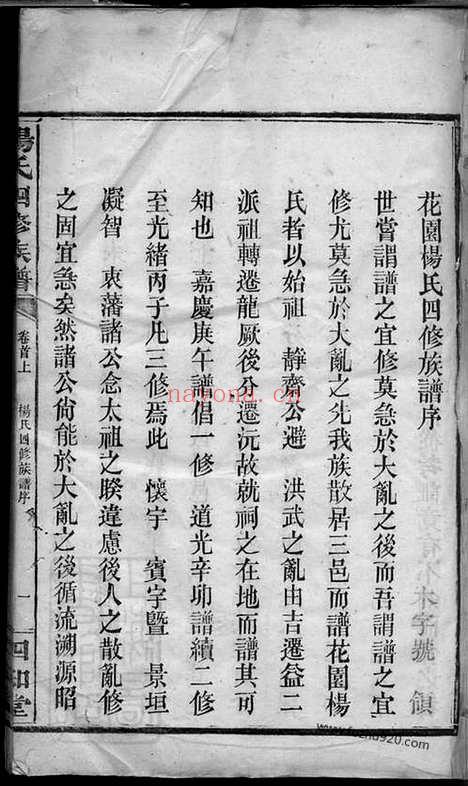 花園楊氏四修族譜序
世嘗謂譜之宜修莫急於大亂之後而吾謂譜之宜
修尤莫急於大亂之先我族散居三邑而譜花園楊
氏者以始祖　靜齋公避　洪武之亂由吉遷益二
派祖轉遷龍厥後分遷沅故就祠之在地而譜其可
知也　嘉慶庚午譜倡一修　道光辛卯譜續二修
至光緒丙子凡三修焉此　懷宇　賓字暨　景垣
凝智　衷藩諸公念太祖之睽違慮後人之散亂修
之固宜急矣然諸公尙能於大亂之後循流溯源昭
楊氏四修族譜
卷首上
楊氏四修族譜序
一
四知堂
nayona.cn